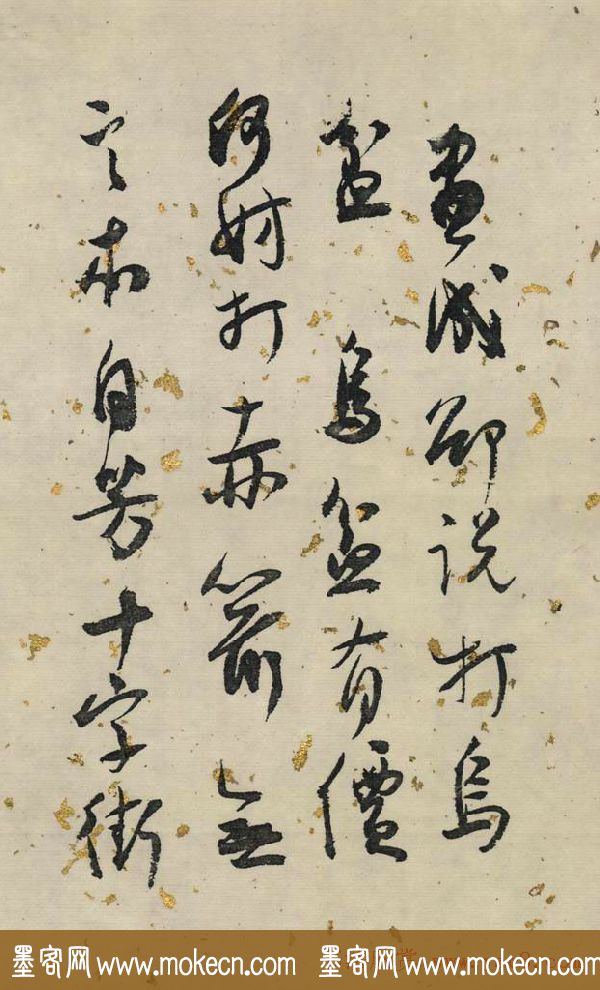 成卻說打烏
盆 烏盆有價
何妨打赤無
本自十字街
墨客网 www.mokecn.com 墨客网 www.mokecn.com